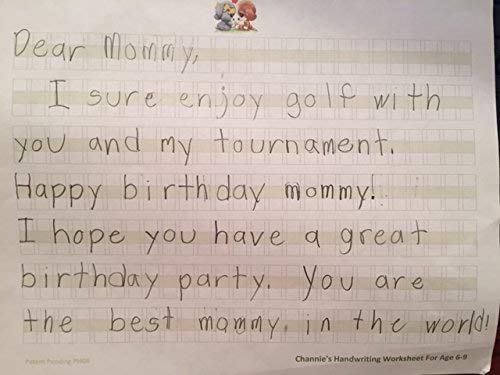 Dear Mommy,
I sure enjoy golf with
you and my tournament.
Happy birthday mommy!
I hope you have a great
birthday party. You are
the best mommy in the world!
Patent Pending PH08
Channie's Handwriting Worksheet For Age 6-9